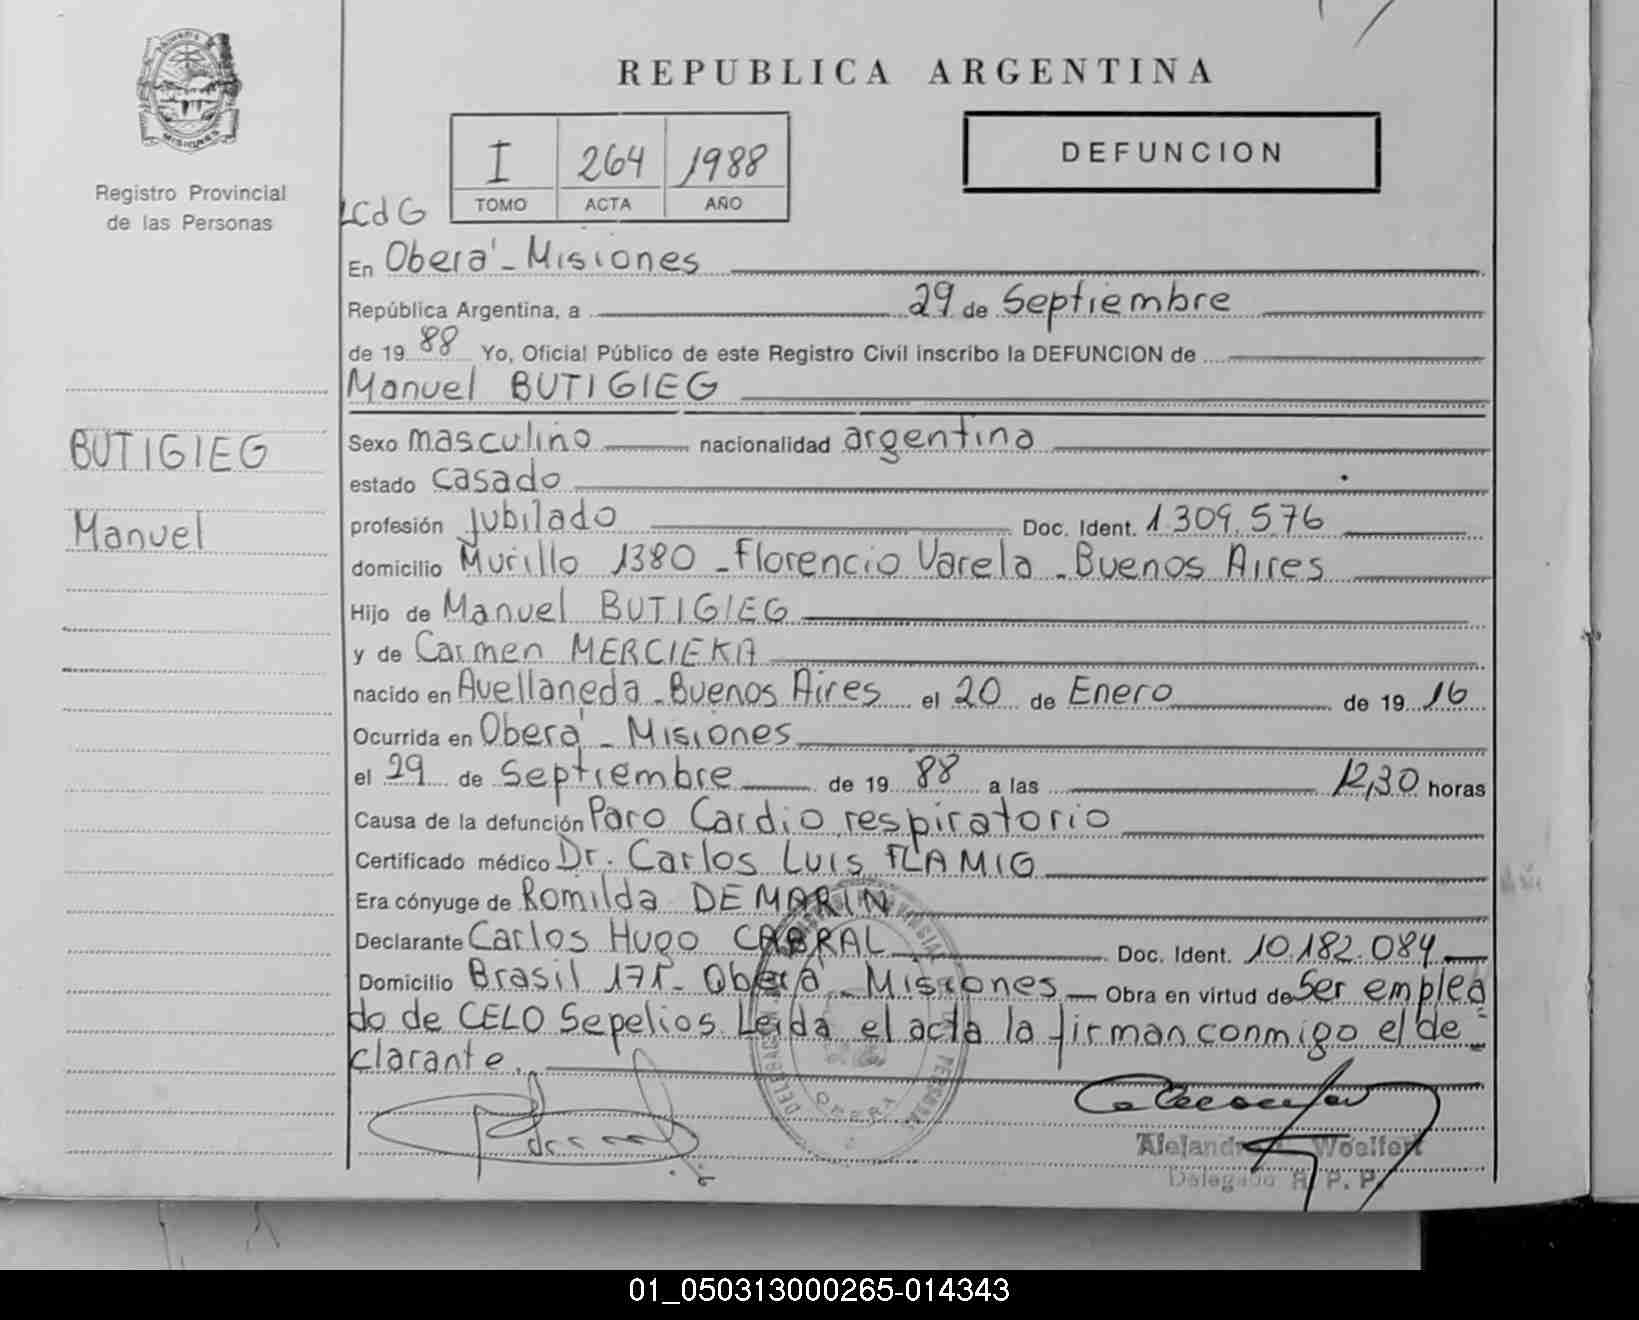 MISIONES
Registro Provincial
de las Personas
BUTIGIEG
Manuel
REPUBLICA ARGENTINA
I 264 1988
TOMO ACTA AÑO
DEFUNCION
LCdG
En Oberá - Misiones
República Argentina, a 29 de Septiembre
de 19 88 Yo, Oficial Público de este Registro Civil inscribo la DEFUNCION de
Manuel BUTIGIEG
Sexo masculino nacionalidad argentina
estado casado
profesión jubilado Doc. Ident. 1.309.576
domicilio Murillo 1380 - Florencio Varela - Buenos Aires
Hijo de Manuel BUTIGIEG
y de Carmen MERCIEKA
nacido en Avellaneda - Buenos Aires el 20 de Enero de 19 16
Ocurrida en Oberá - Misiones
el 29 de Septiembre de 19 88 a las 12,30 horas
Causa de la defunción Paro Cardio respiratorio
Certificado médico Dr. Carlos Luis FLAMIG
Era cónyuge de Romilda DE MARIN
Declarante Carlos Hugo CABRAL Doc. Ident. 10.182.084
Domicilio Brasil 171 - Oberá - Misiones Obra en virtud de Ser emplea
do de CELO Sepelios. Leída el acta la firman conmigo el de
clarante.
OBERA
Woelfert
Delegado R. P. P.
01_050313000265-014343